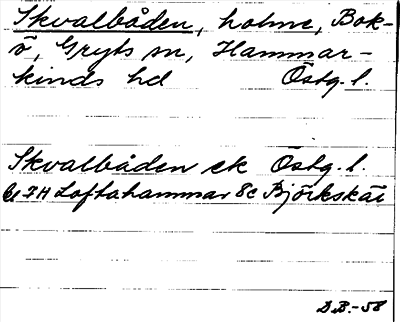 Skvalbåden, holme, Bok-
ö, Gryts sn, Hammar-
kinds hd Östg. l.
Skvalbåden ek Östg. l.
7H Loftahammar 8c Björkskär
D.B.-58